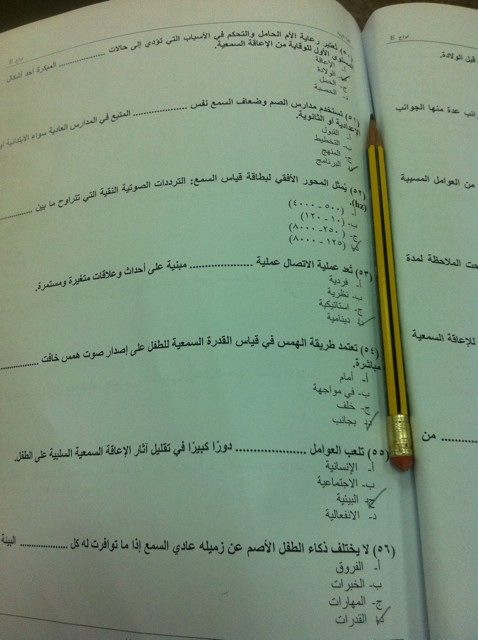 نموذج E
(٥٠) تُعتبر رعاية الأم الحامل والتحكم في الأسباب التي تؤدي إلى حالات .................. المبكرة أحد أشكال
المستوى الأول للوقاية من الإعاقة السمعية.
أ- الإعاقة
ب- الولادة
ج- الحمل
د- الحصبة
(٥١) تستخدم مدارس الصم وضعاف السمع نفس .................. المتبع في المدارس العادية سواء الابتدائية أو
الإعدادية أو الثانوية.
أ- القبول
ب- التخطيط
ج- المنهج
د- البرنامج
(٥٢) يُمثل المحور الأفقي لبطاقة قياس السمع: الترددات الصوتية النقية التي تتراوح ما بين ..................
(hz).
أ- (٥٠٠ - ٤٠٠٠)
ب- (١٠ - ١٢٠)
ج- (٢٥٠ - ٨٠٠٠)
د- (١٢٥ - ٨٠٠٠)
(٥٣) تُعد عملية الاتصال عملية .................. مبنية على أحداث وعلاقات متغيرة ومستمرة.
أ- فردية
ب- نظرية
ج- استاتيكية
د- دينامية
(٥٤) تعتمد طريقة الهمس في قياس القدرة السمعية للطفل على إصدار صوت همس خافت ..................
مباشرة.
أ- أمام
ب- في مواجهة
ج- خلف
د- بجانب
(٥٥) تلعب العوامل .................. دورًا كبيرًا في تقليل آثار الإعاقة السمعية السلبية على الطفل.
أ- الإنسانية
ب- الاجتماعية
ج- البيئية
د- الانفعالية
(٥٦) لا يختلف ذكاء الطفل الأصم عن زميله عادي السمع إذا ما توافرت له كل .................. البيئة
أ- الفروق
ب- الخبرات
ج- المهارات
د- القدرات
نموذج E
قبل الولادة.
عدة منها الجوانب
من العوامل المسببة
الملاحظة لمدة
للإعاقة السمعية
.................. من